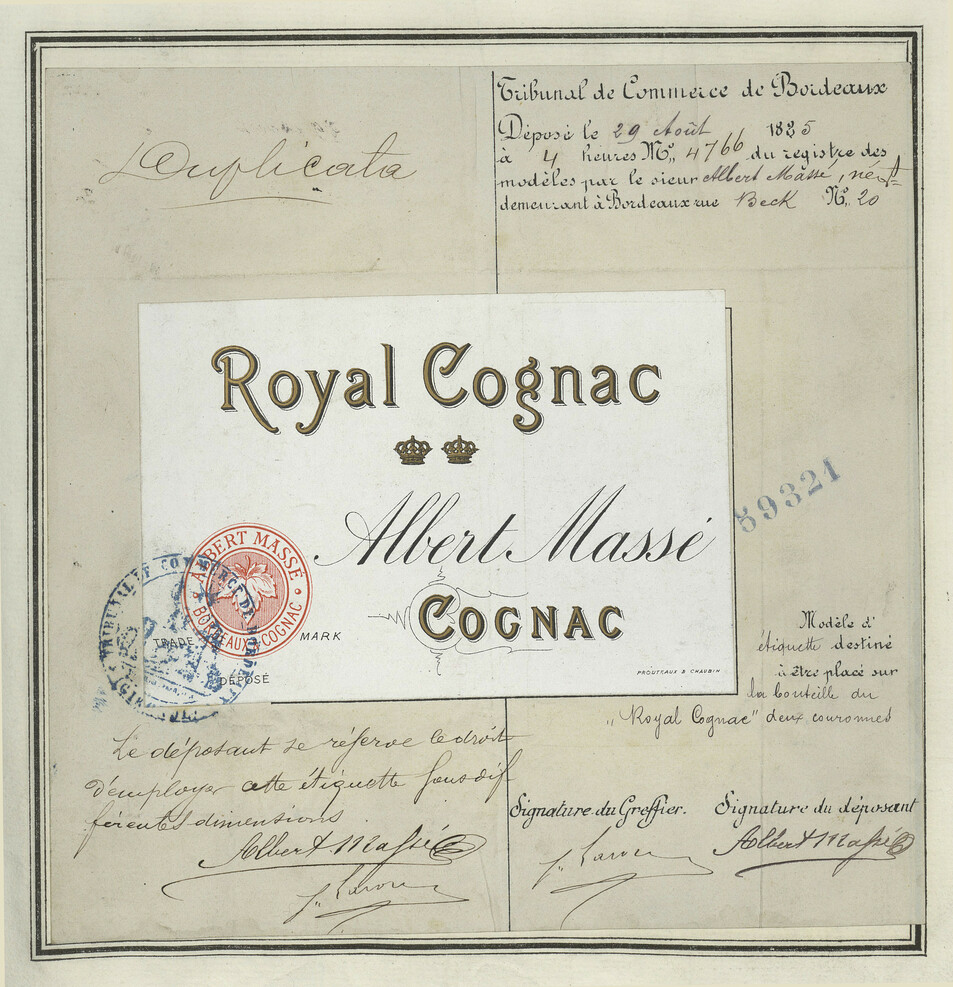 Duplicata
Tribunal de Commerce de Bordeaux
Déposé le 29 Août 1885
à 4 heures No. 4766 du registre des
modèles par le sieur Albert Massé, nég.t
demeurant à Bordeaux rue Beck No. 20
Royal Cognac
Albert Massé
COGNAC
ALBERT MASSÉ
BORDEAUX & COGNAC
TRADE MARK
DÉPOSÉ
PROUTEAUX & CHAUBIN
TRIBUNAL DE COMMERCE DE BORDEAUX
(GIRONDE)
59321
Modèle d'
étiquette destiné
à être placé sur
la bouteille du
"Royal Cognac" deux couronnes
Le déposant se réserve le droit
d'employer cette étiquette sous dif
férentes dimensions.
Albert Massé
Signature du Greffier. Signature du déposant
Albert Massé